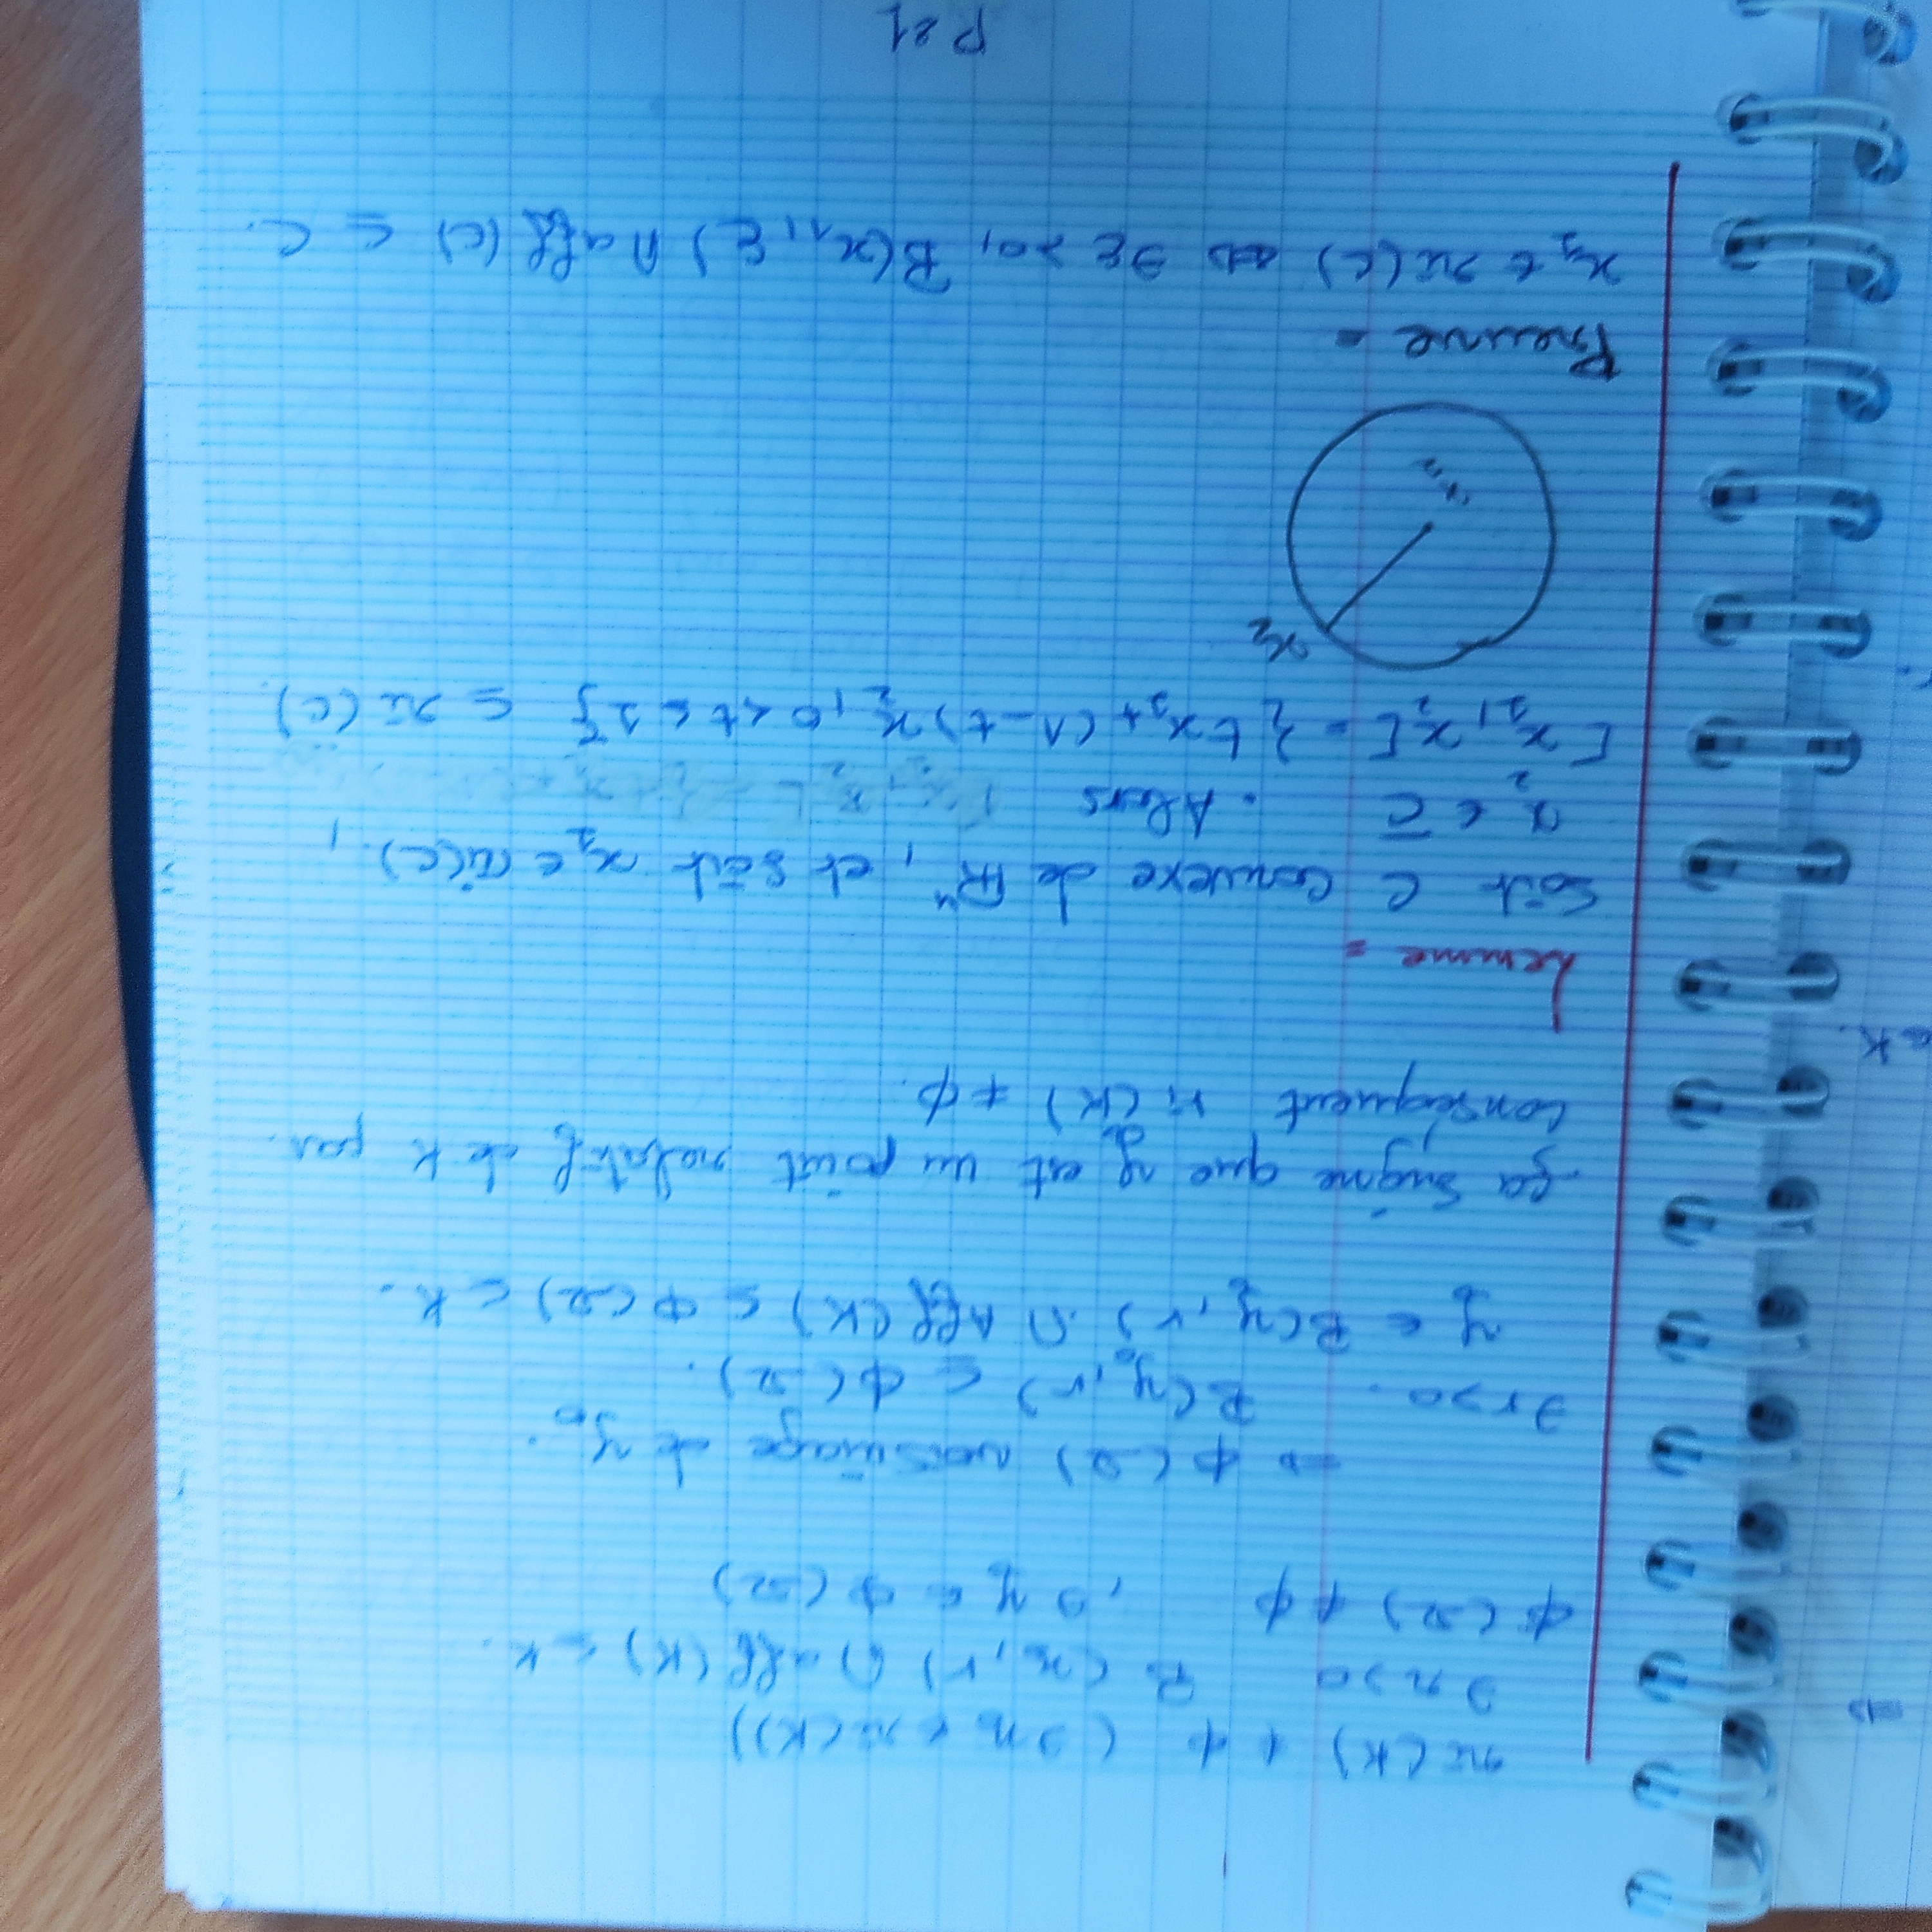 ri(K) ≠ ϕ (∃x₀ ∈ ri(K))
∃r>0 B(x₀, r) ∩ aff(K) ⊂ K.
ϕ(Ω) ≠ ϕ , ∃ y₀ ∈ ϕ(Ω)
⇒ ϕ(Ω) voisinage de y₀.
∃r>0. B(y₀, r) ⊆ ϕ(Ω).
y ∈ B(y₀, r) ∩ Aff(K) ⊆ ϕ(Ω) ⊂ K.
ça signie que y₀ est un point relatif de K par
conséquent ri(K) ≠ ϕ.
Lemme =
Soit C convexe de ℝⁿ, et soit x₁ ∈ ri(C),
x₂ ∈ C̅ . Alors
[x₁, x₂[ = { t x₁ + (1-t) x₂, 0 < t ≤ 1 } ⊆ ri(C).
x₂
x₁
Preuve =
x₁ ∈ ri(C) ⇔ ∃ε >0, B(x₁, ε) ∩ aff(C) ⊆ C.
P21
⇒
⊂ K.